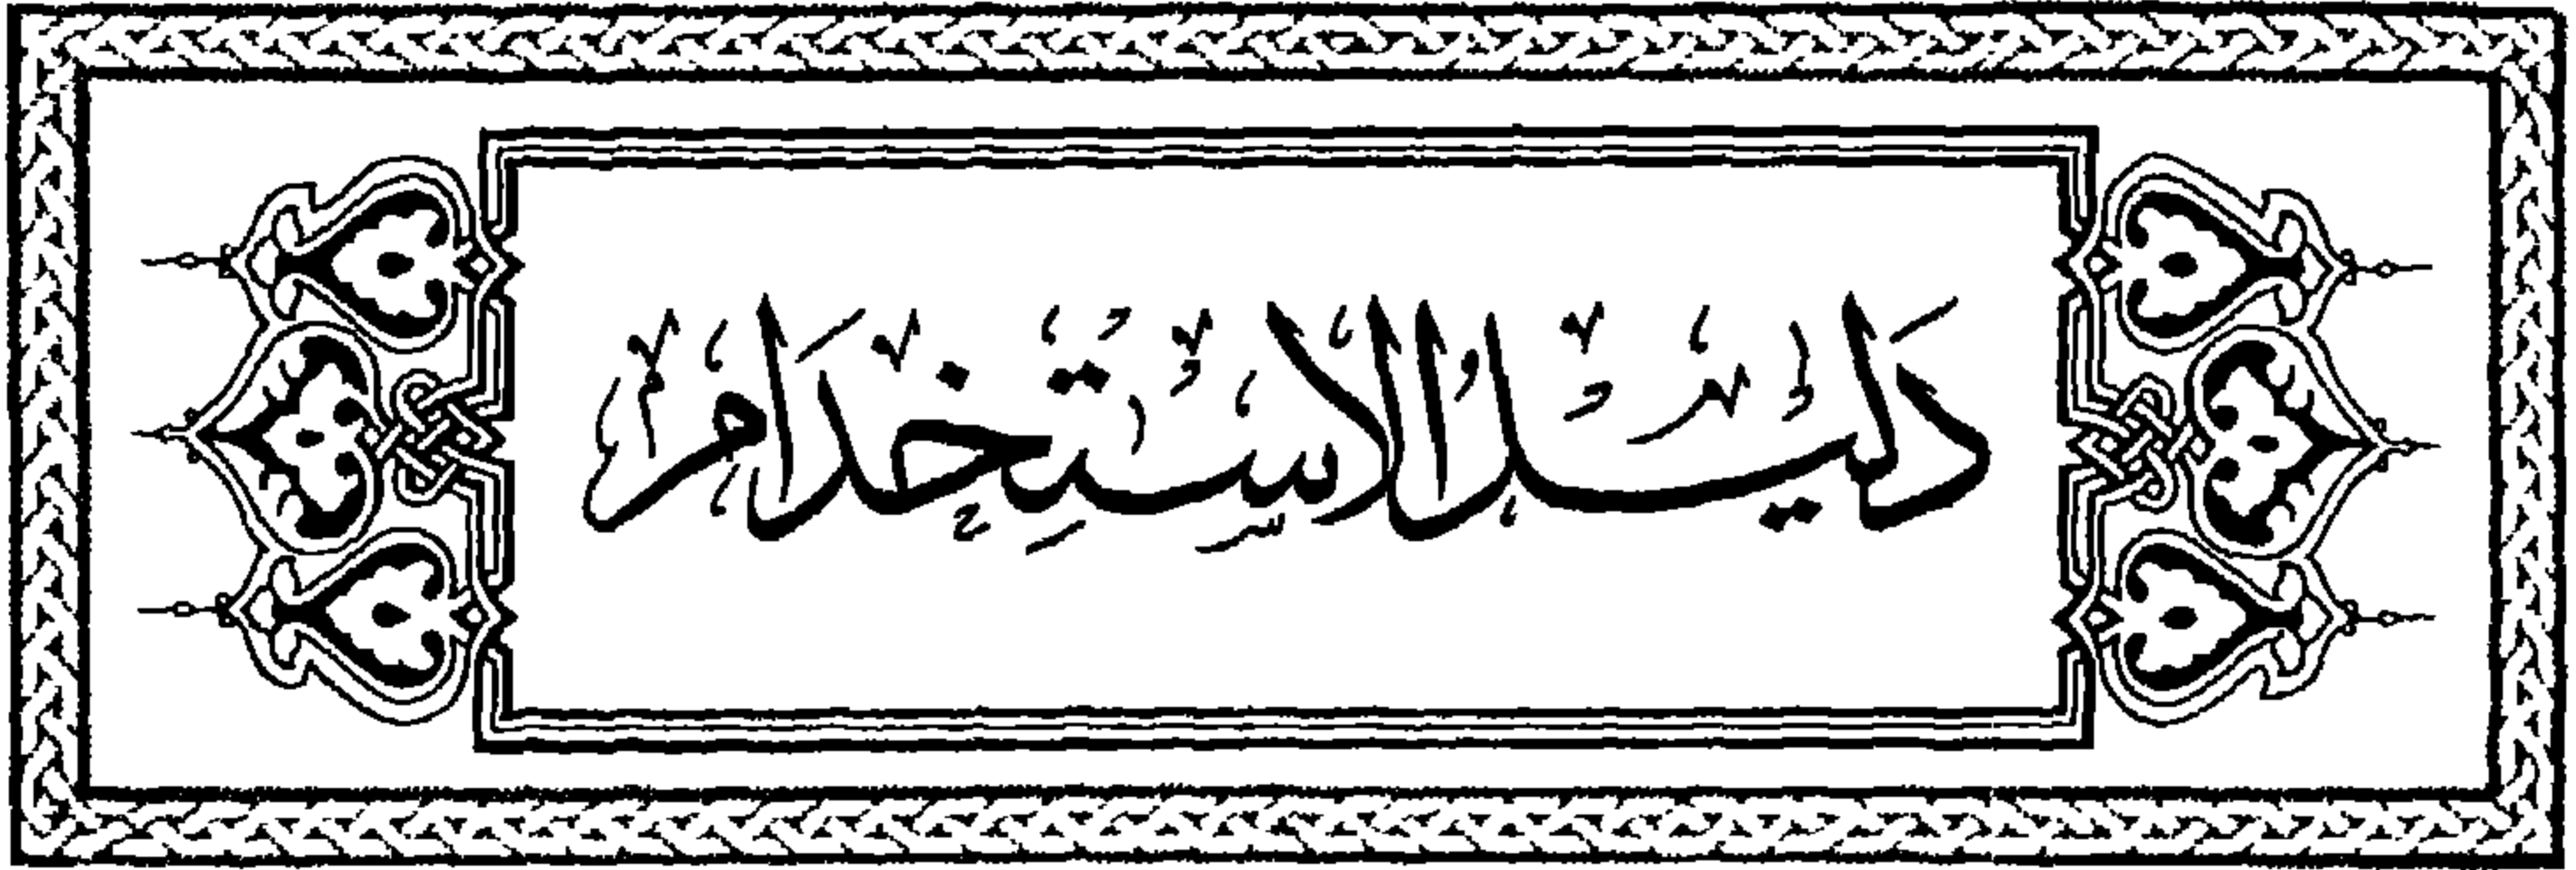 دَليل الاسْتِخْدَام